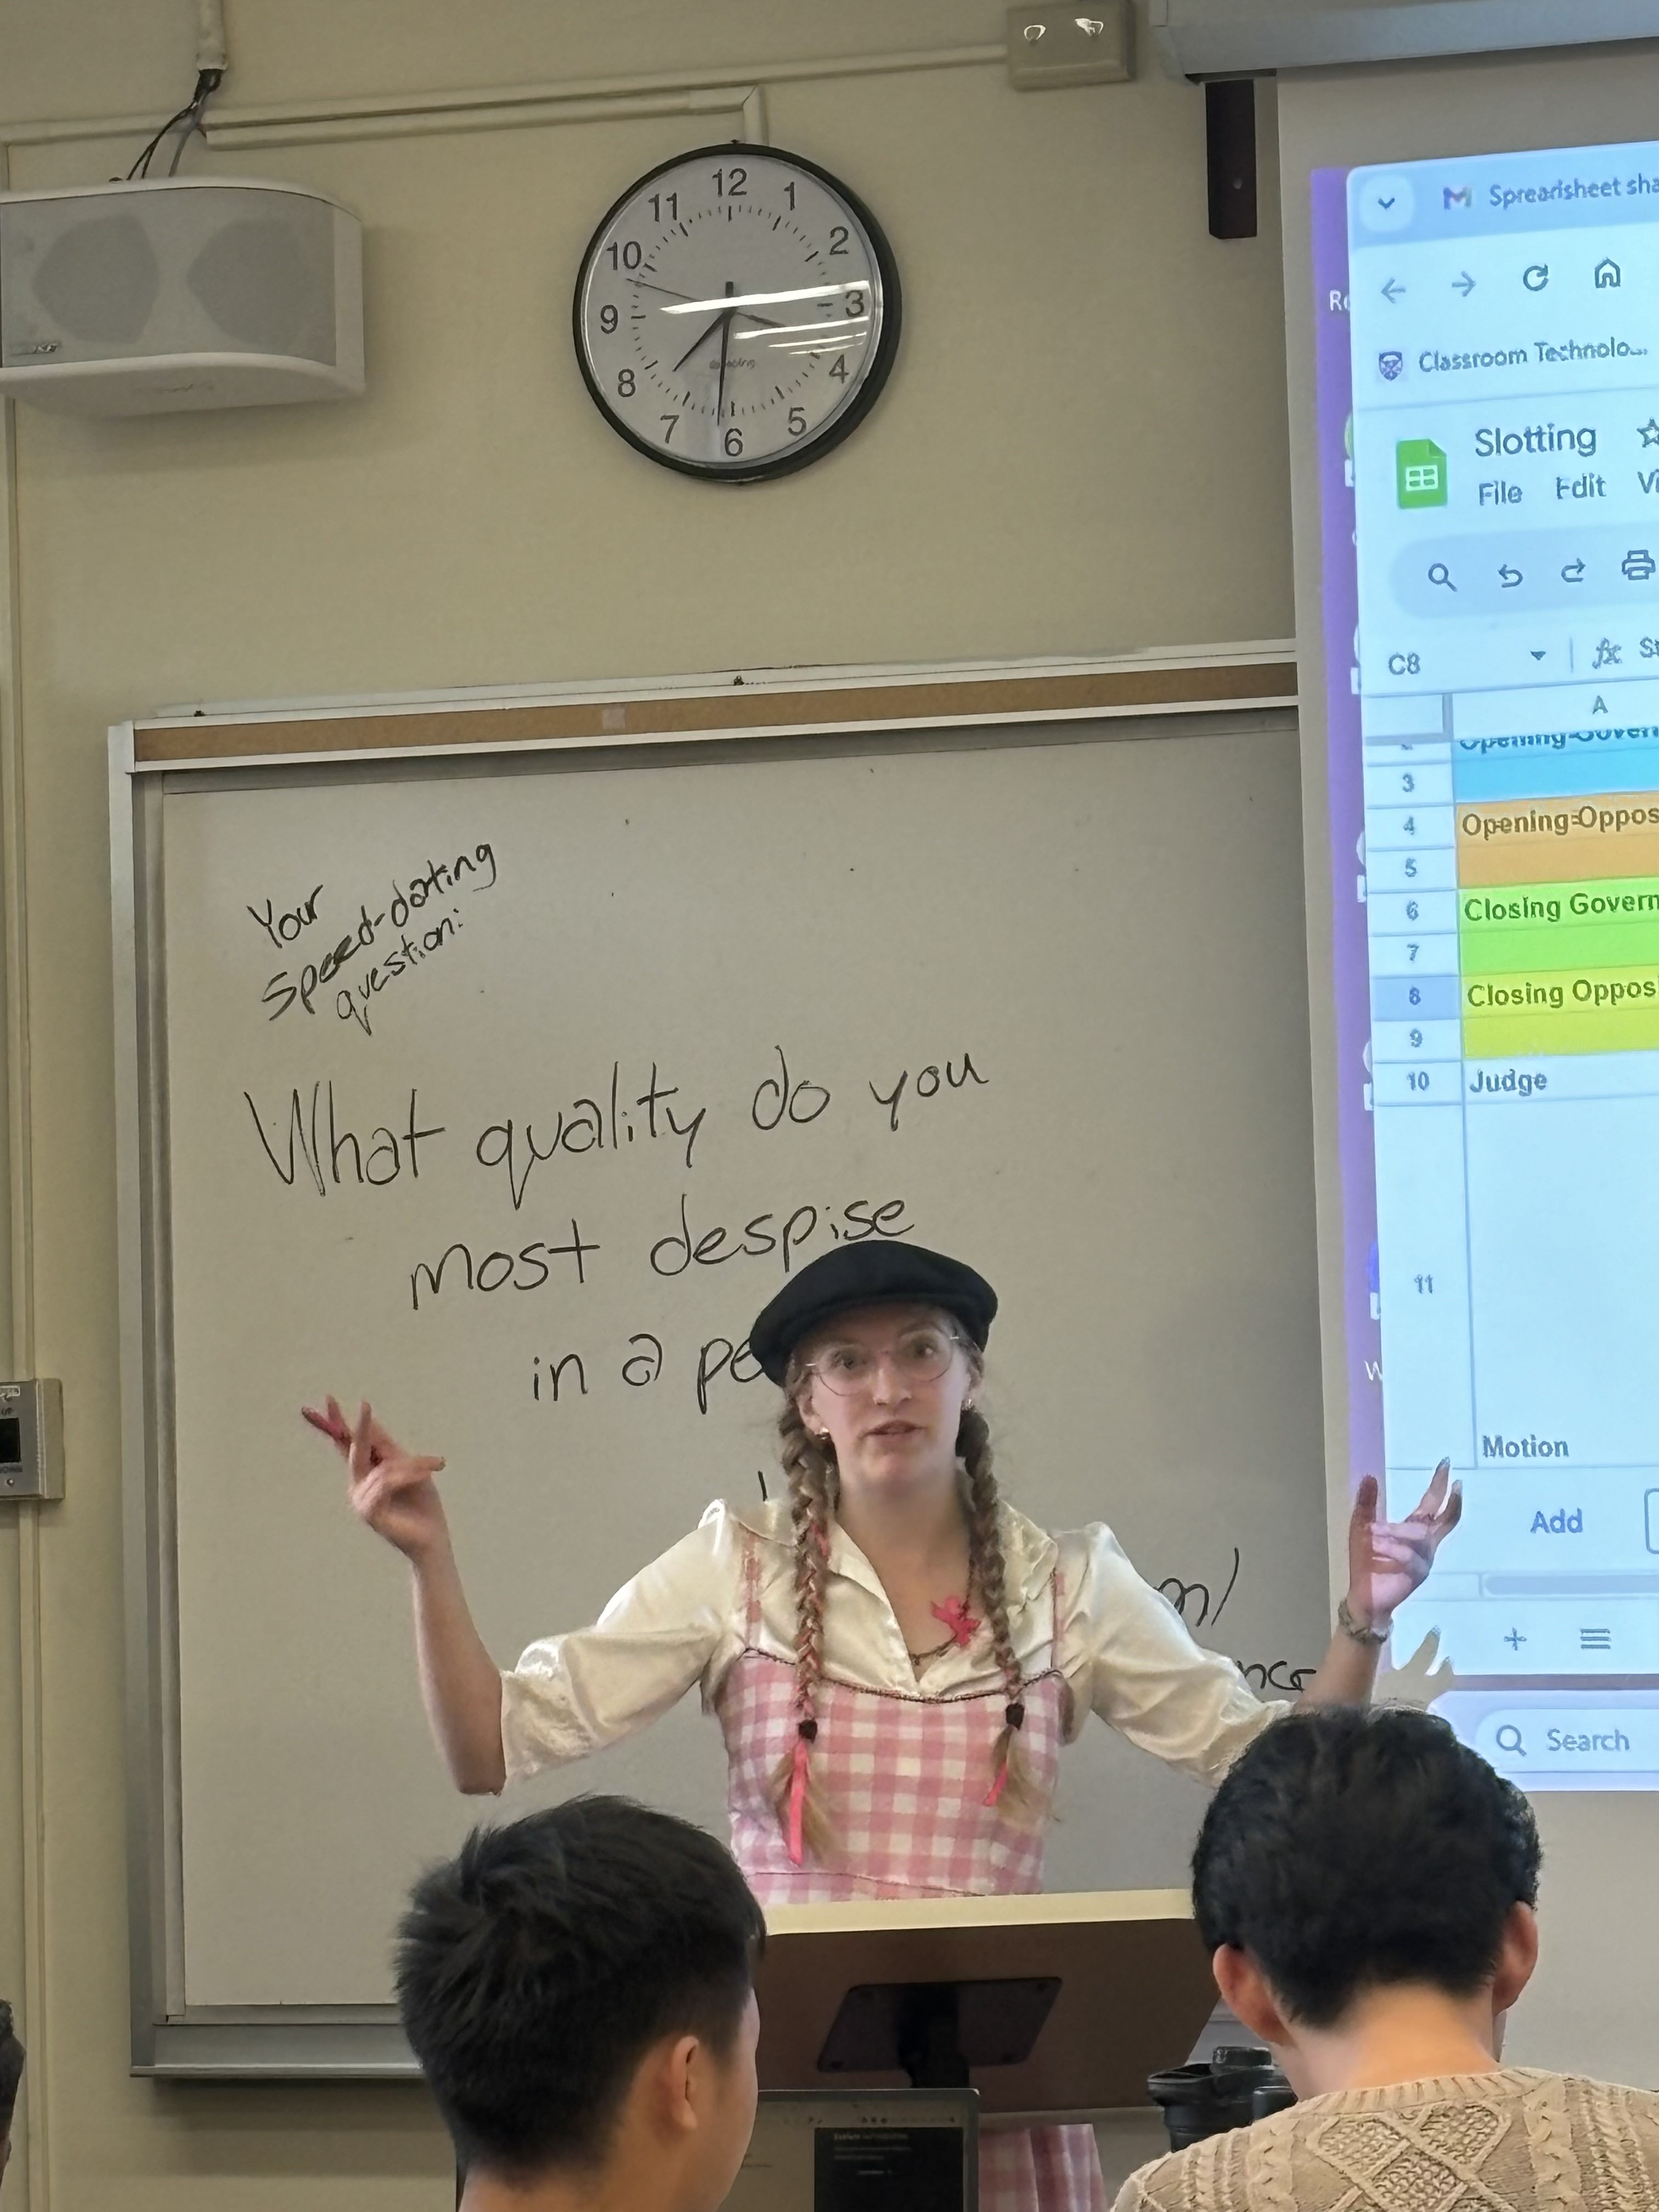 12
1
2
3
4
5
6
7
8
9
10
11
Your
Speed-dating
question:
What quality do you
most despise
in a pe
Spreadsheet sha
Classroom Technolo...
Slotting
File Edit Vi
C8
fx St
A
Opening Govern
3
4 Opening Oppos
5
6 Closing Govern
7
8 Closing Opposi
9
10 Judge
11 Motion
Add
Search